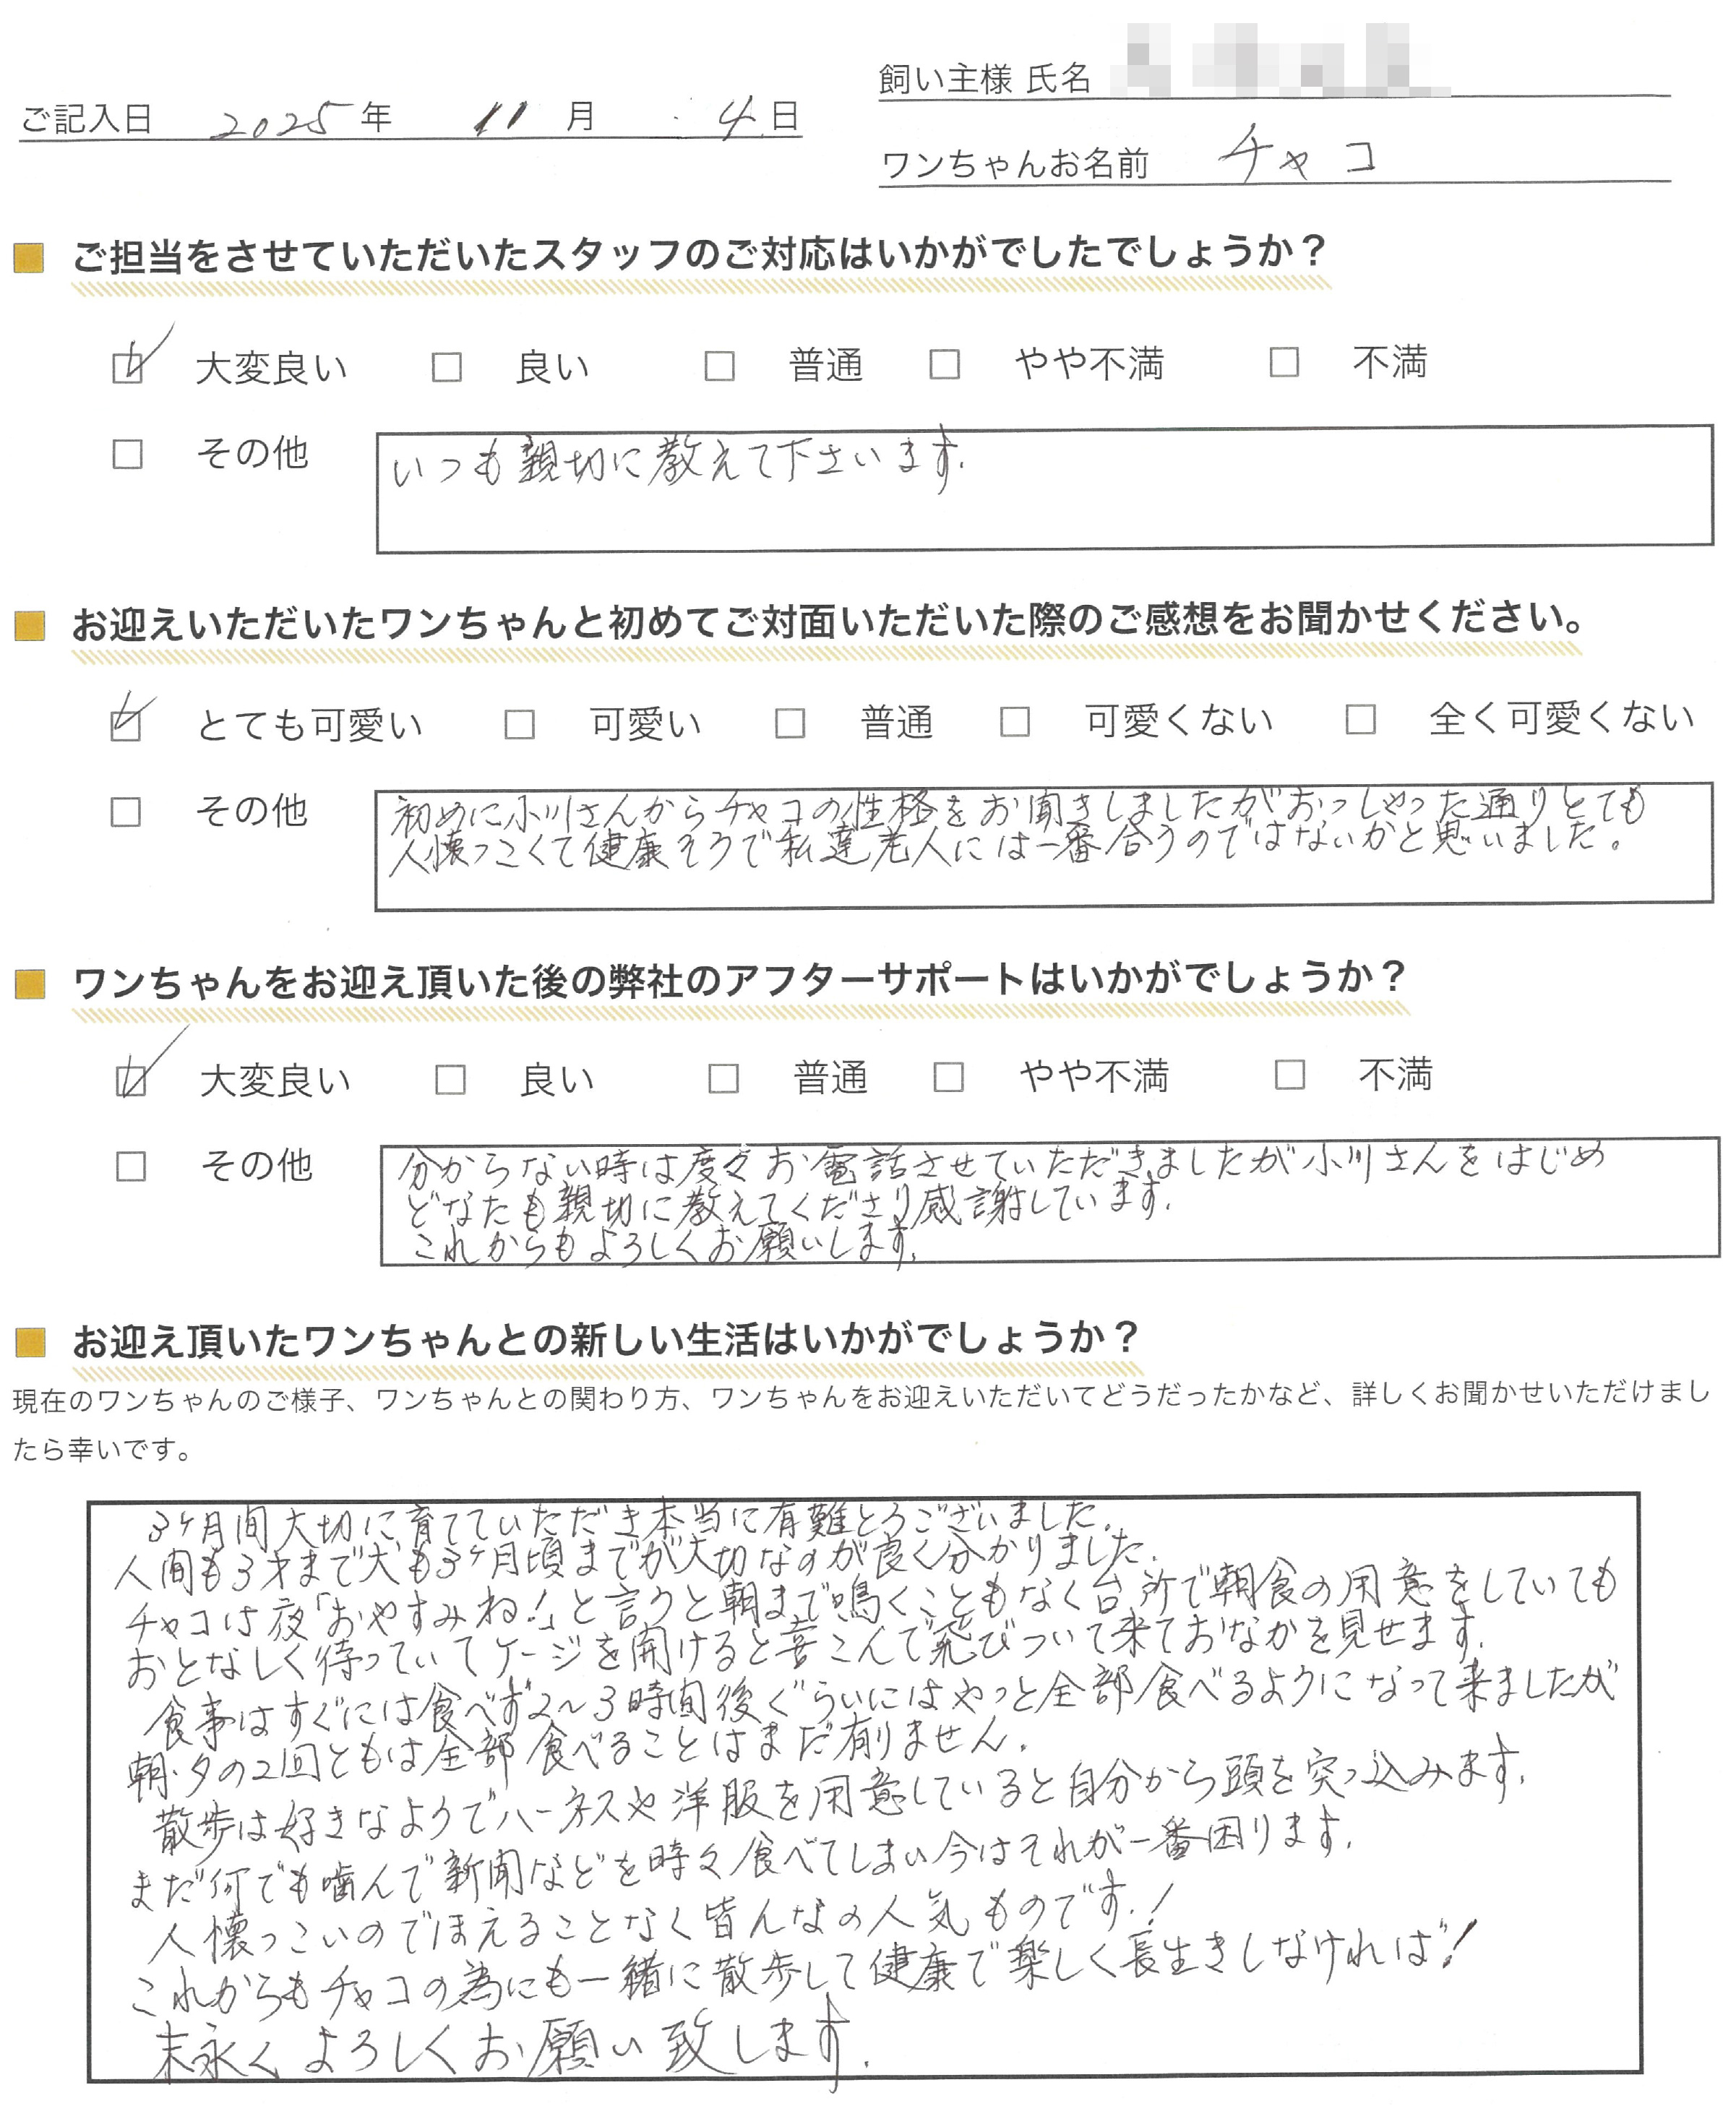 飼い主様 氏名
ご記入日 2025年 11月 4日
ワンちゃんお名前 チャコ
■ ご担当をさせていただいたスタッフのご対応はいかがでしたでしょうか？
☑ 大変良い □ 良い □ 普通 □ やや不満 □ 不満
□ その他
いつも親切に教えて下さいます.
■ お迎えいただいたワンちゃんと初めてご対面いただいた際のご感想をお聞かせください。
☑ とても可愛い □ 可愛い □ 普通 □ 可愛くない □ 全く可愛くない
□ その他
初めに小川さんからチャコの性格をお聞きしましたがおっしゃった通りとても
人懐っこくて健康そうで私達老人には一番合うのではないかと思いました。
■ ワンちゃんをお迎え頂いた後の弊社のアフターサポートはいかがでしょうか？
☑ 大変良い □ 良い □ 普通 □ やや不満 □ 不満
□ その他
分からない時は度々お電話させていただきましたが小川さんをはじめ
どなたも親切に教えてくださり感謝しています.
これからもよろしくお願いします.
■ お迎え頂いたワンちゃんとの新しい生活はいかがでしょうか？
現在のワンちゃんのご様子、ワンちゃんとの関わり方、ワンちゃんをお迎えいただいてどうだったかなど、詳しくお聞かせいただけまし
たら幸いです。
3ヶ月間大切に育てていただき本当に有難とうございました.
人間も3才まで犬も3ヶ月頃までが大切なのが良く分かりました.
チャコは夜「おやすみね!」と言うと朝まで鳴くこともなく台所で朝食の用意をしていても
おとなしく待っていてケージを開けると喜こんで飛びついて来ておなかを見せます.
食事はすぐには食べず2〜3時間後ぐらいにはやっと全部食べるようになって来ましたが
朝・夕の2回ともは全部食べることはまだ有りません.
散歩は好きなようでハーネスや洋服を用意していると自分から頭を突っ込みます.
まだ何でも噛んで新聞などを時々食べてしまい今はそれが一番困ります.
人懐っこいのでほえることなく皆んなの人気ものです.!
これからもチャコの為にも一緒に散歩して健康で楽しく長生きしなければ!
末永くよろしくお願い致します.